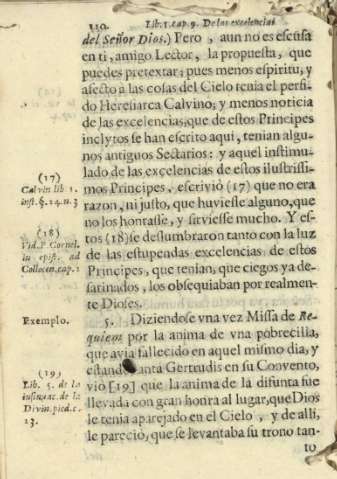 110. Lib. 1. cap. 9. De las excelencias
del Señor Dios.) Pero, aun no es escusa
en ti, amigo Lector, la propuesta, que
puedes pretextar; pues menos espiritu, y
afecto a las cosas del Cielo tenia el perfi-
do Heresiarca Calvino; y menos noticia
de las excelencias, que de estos Principes
inclytos se han escrito aqui, tenian algu-
nos antiguos Sectarios: y aquel instimu-
lado de las excelencias de estos ilustrissi-
mos Principes, escrivió (17) que no era
razon, ni justo, que huviesse alguno, que
no los honrasse, y sirviesse mucho. Y es-
tos (18) se deslumbraron tanto con la luz
de las estupendas excelencias de estos
Principes, que tenian, que ciegos ya de-
satinados, los obsequiaban por realmen-
te Dioses.
5. Diziendose vna vez Missa de Re-
quiem por la anima de vna pobrecilla,
que avia fallecido en aquel mismo dia, y
estando Santa Gertrudis en su Convento,
vió [19] que la anima de la difunta fue
llevada con gran honra al lugar, que Dios
le tenia aparejado en el Cielo, y de alli,
le pareció, que se levantaba su trono tan-
to
(17)
Calvin lib 1.
inst. §. 14. n. 3
(18)
Vid. P. Cornel.
in epist. ad
Collocen. cap. 2
Exemplo.
(19)
Lib. 5. de la
insinuac. de la
Divin. pied. c.
13.